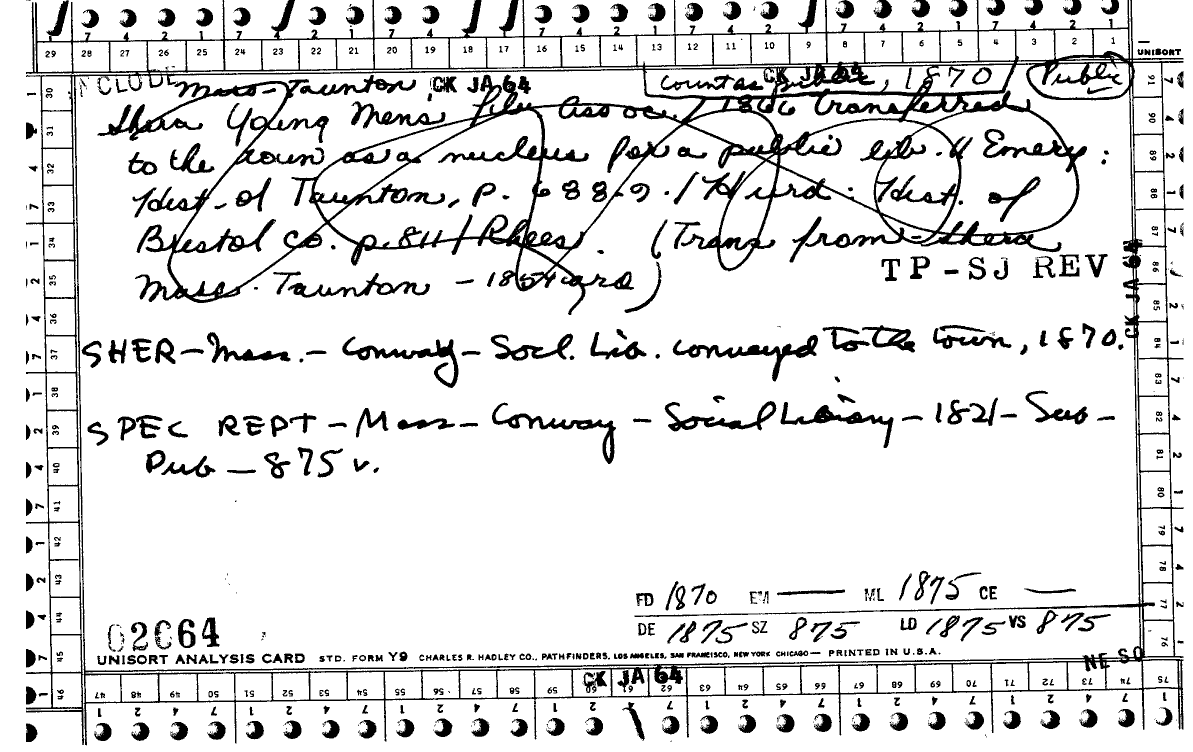 7 4 2 1 7 4 2 1 7 4 2 1 7 4 2 1 7 4 2 1 7 4 2 1 7 4 2 1
29 28 27 26 25 24 23 22 21 20 19 18 17 16 15 14 13 12 11 10 9 8 7 6 5 4 3 2 1 UNISORT
NCLUDE Mass-Taunton CK JA 64 count as CK JA 64, 1870 Public
Shera Young Mens Assoc. / 1866 transferred
to the town as a nucleus for a public lib. // Emery:
Hist. of Taunton, p. 688-9. / Hurd: Hist. of
Bristol Co. p. 811 / Rhees. (Trans from Shera
Mass. Taunton - 1854 )
TP-SJ REV
CK JA 64
SHER-Mass.- Conway- Socl. Lib. conveyed to the town, 1870.
SPEC REPT - Mass - Conway - Social Library - 1821 - Sub -
Pub - 875 v.
FD 1870 EM — ML 1875 CE —
DE 1875 SZ 875 LD 1875 VS 875
02664
UNISORT ANALYSIS CARD STD. FORM Y9 CHARLES R. HADLEY CO., PATHFINDERS, LOS ANGELES, SAN FRANCISCO, NEW YORK CHICAGO — PRINTED IN U.S.A.
NE SO
CK JA 64
30 31 32 33 34 35 36 37 38 39 40 41 42 43 44 45 46
47 48 49 50 51 52 53 54 55 56 57 58 59 60 61 62 63 64 65 66 67 68 69 70 71 72 73 74 75
76 77 78 79 80 81 82 83 84 85 86 87 88 89 90 91